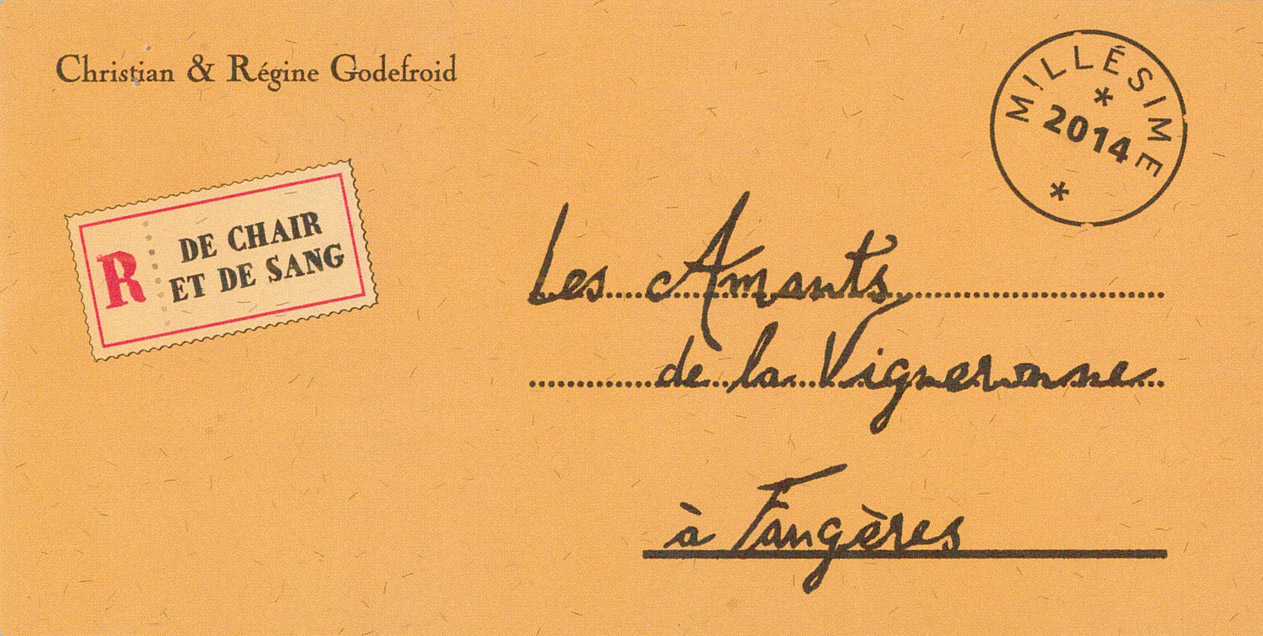 Christian & Régine Godefroid
MILLÉSIME
* 2014 *
R DE CHAIR
ET DE SANG
Les Amants
de la Vigneronne
à Faugères